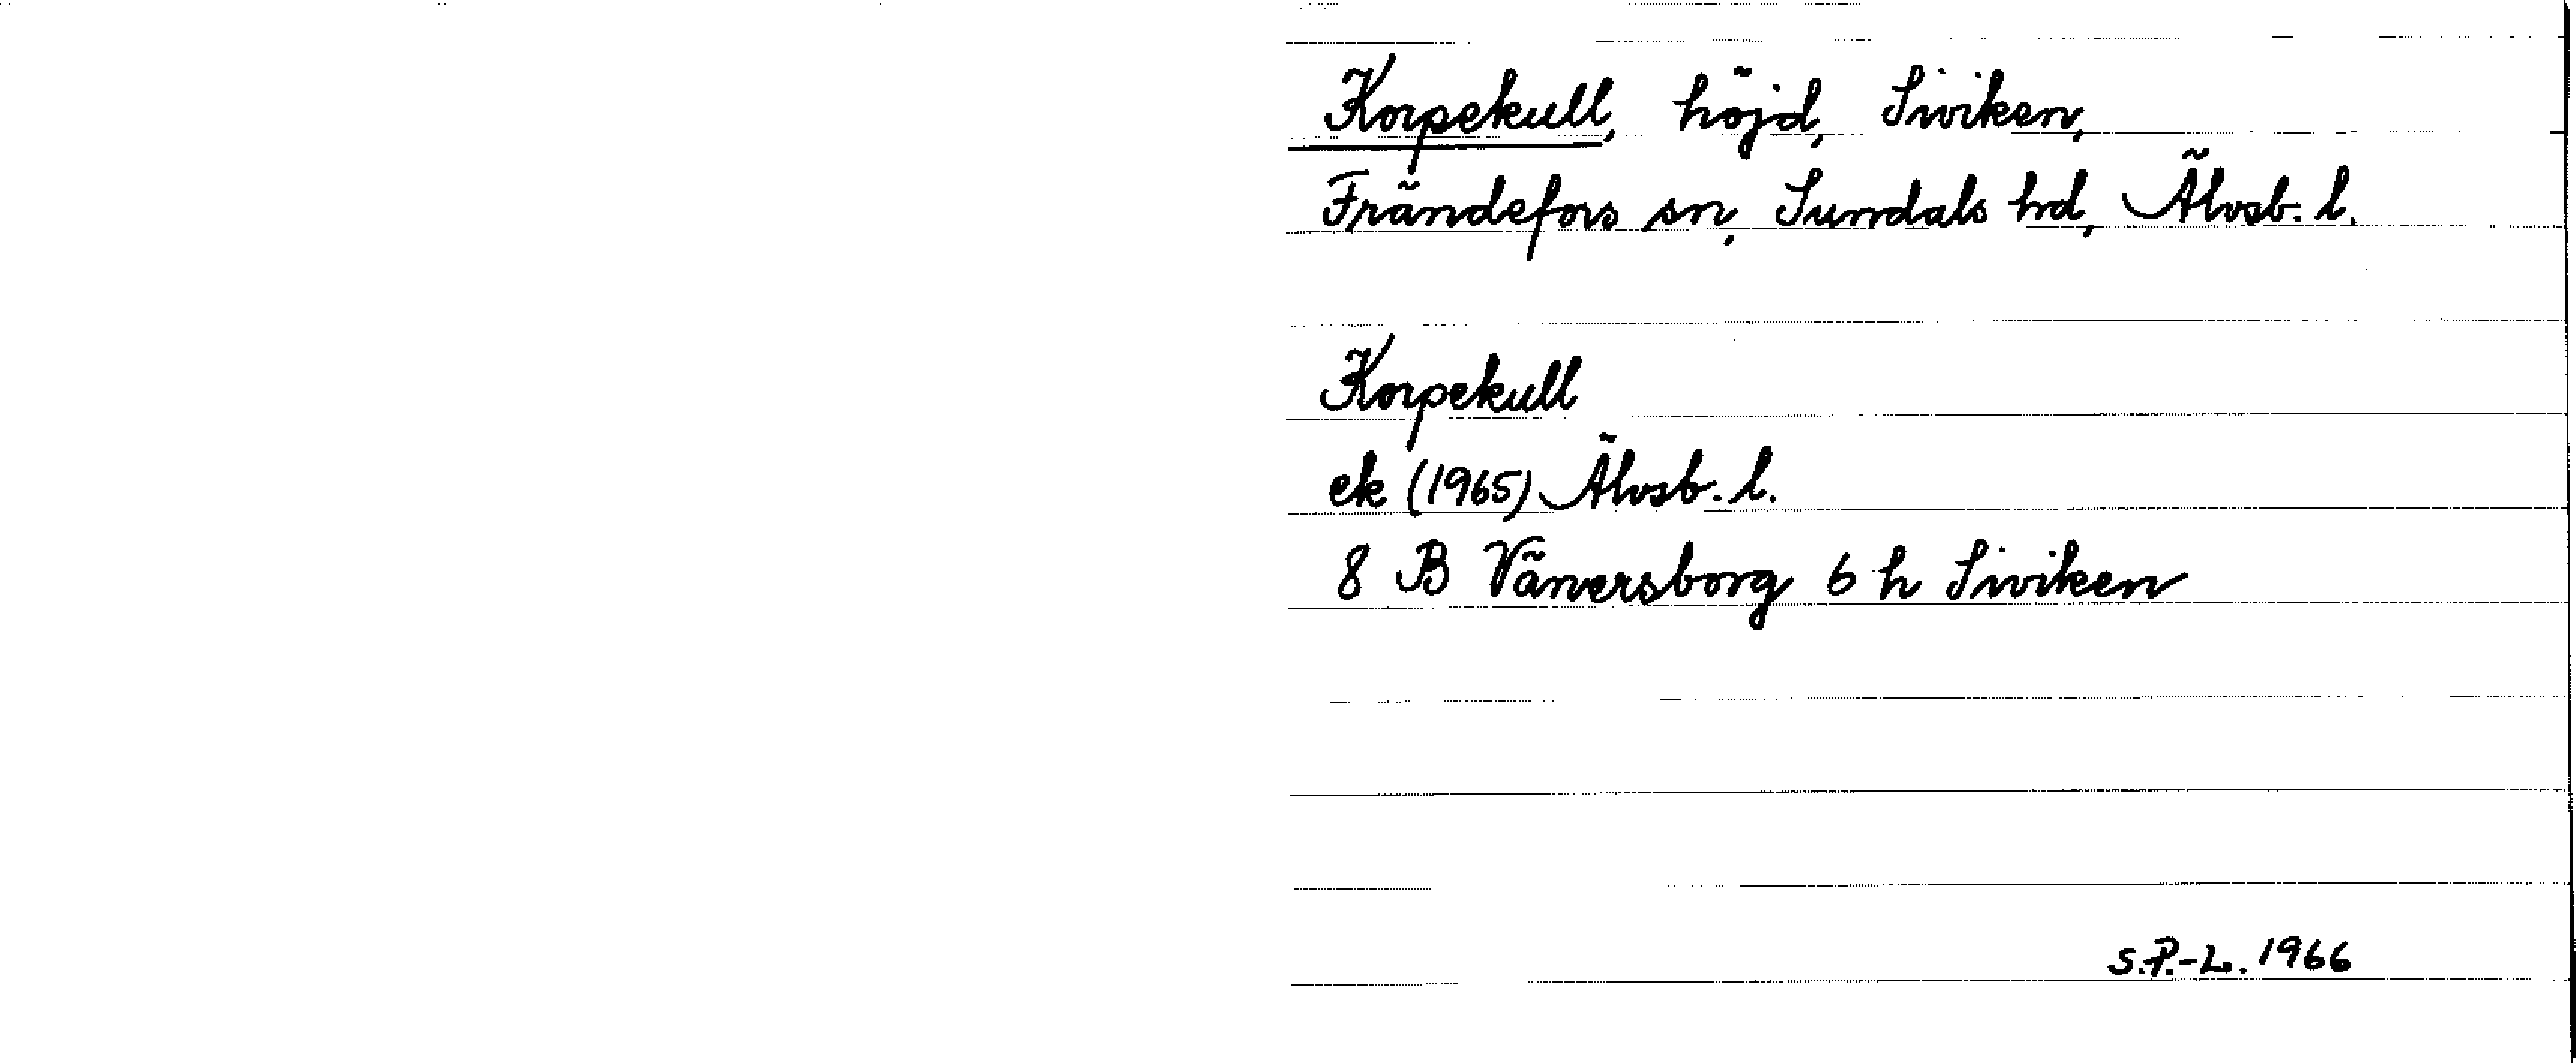 Korpekull, höjd, Siviken,
Frändefors sn, Sundals hd, Älvsb. l.
Korpekull
ek (1965) Älvsb. l.
8 B Vänersborg 6 h Siviken
S.P.-L. 1966